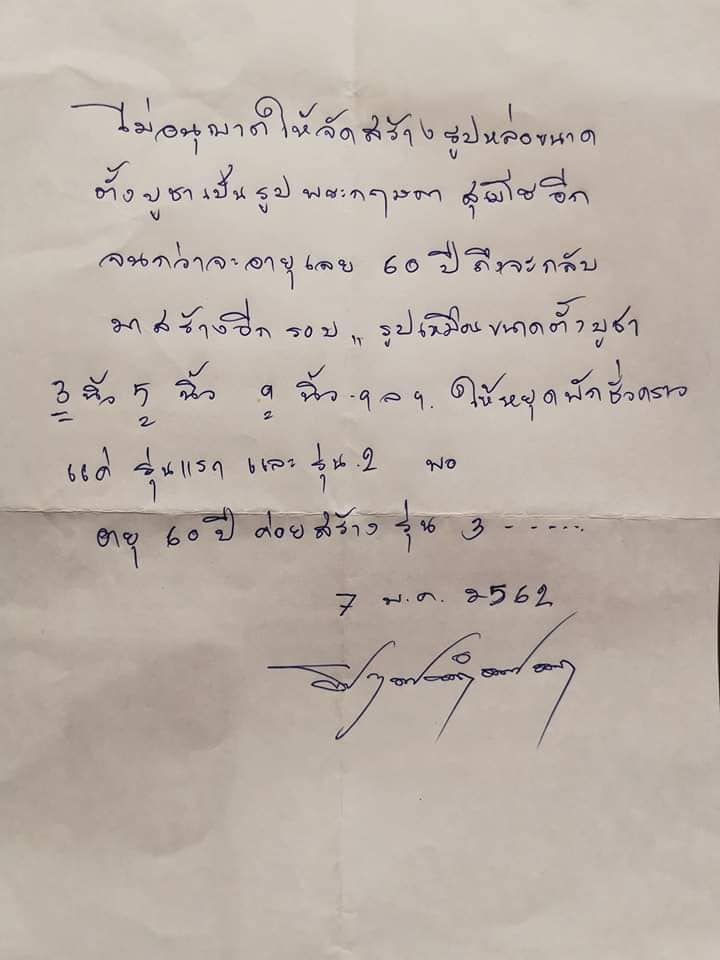 ไม่อนุญาตให้จัดสร้างรูปหล่อขนาด
ตั้งบูชาเป็นรูปพระกฤษดา สุเมโธ อีก
จนกว่าจะอายุเลย 60 ปี ถึงจะกลับ
มาสร้างอีกรอบ ,, รูปเหมือนขนาดตั้งบูชา
3 นิ้ว 5 นิ้ว 9 นิ้ว ฯลฯ. ให้หยุดพักชั่วคราว
แค่ รุ่นแรก และ รุ่น.2 พอ
อายุ 60 ปี ค่อยสร้าง รุ่น 3 ------
7 พ.ค. 2562